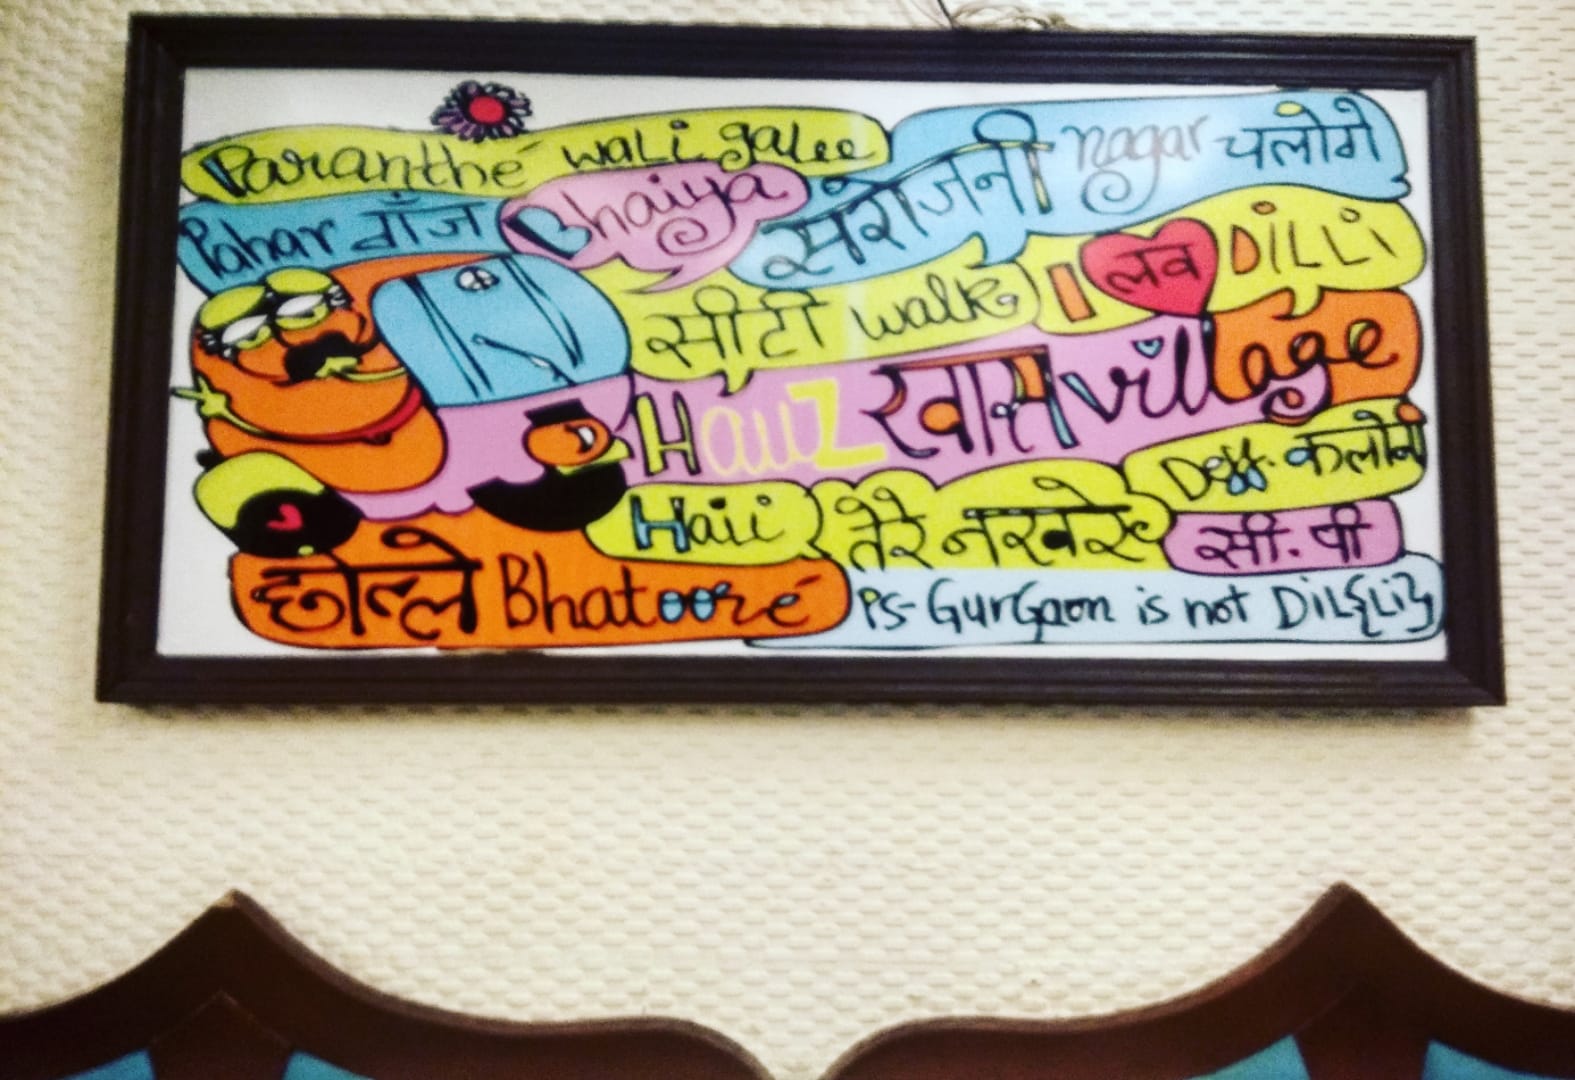 Paranthé wali galee
Bhaiya सरोजनी nagar चलोगे
Pahar गाँज
सीटी walk
I लव DiLLi
Hauz खास village
Haii तेरे नखरे
Deff. कलोनी
सी. पी
छोल्ले Bhatooré
PS- GurGaon is not DiL{Li}